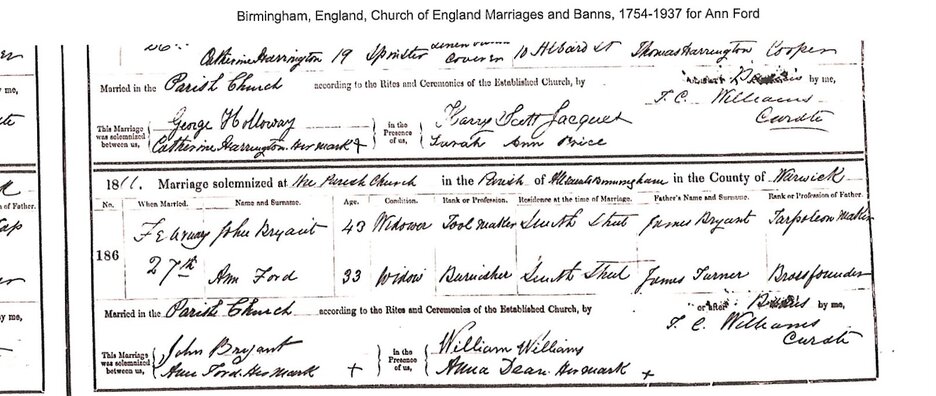 Birmingham, England, Church of England Marriages and Banns, 1754-1937 for Ann Ford
Catherine Harrington 19 Spinster 10 Thomas Harrington Cooper
Married in the Parish Church according to the Rites and Ceremonies of the Established Church, by by me,
T. C. Williams
Curate
This Marriage was solemnized between us, George Holloway in the Presence of us, Harry Scott Jacques
Catherine Harrington. Her mark + Sarah Ann Price
18 . Marriage solemnized at the Parish Church in the Parish of Birmingham in the County of Warwick
No. When Married. Name and Surname. Age. Condition. Rank or Profession. Residence at the time of Marriage. Father's Name and Surname. Rank or Profession of Father.
186 February John Bryant 43 Widower Tool maker Street James Bryant Tarpoleon maker
27th Ann Ford 33 Widow Burnisher James Turner Brassfounder
Married in the Parish Church according to the Rites and Ceremonies of the Established Church, by or after Banns by me,
T. C. Williams
Curate
This Marriage was solemnized between us, John Bryant in the Presence of us, William Williams
Ann Ford. Her mark + Anna Dean. Her mark +
of Father.
y me,